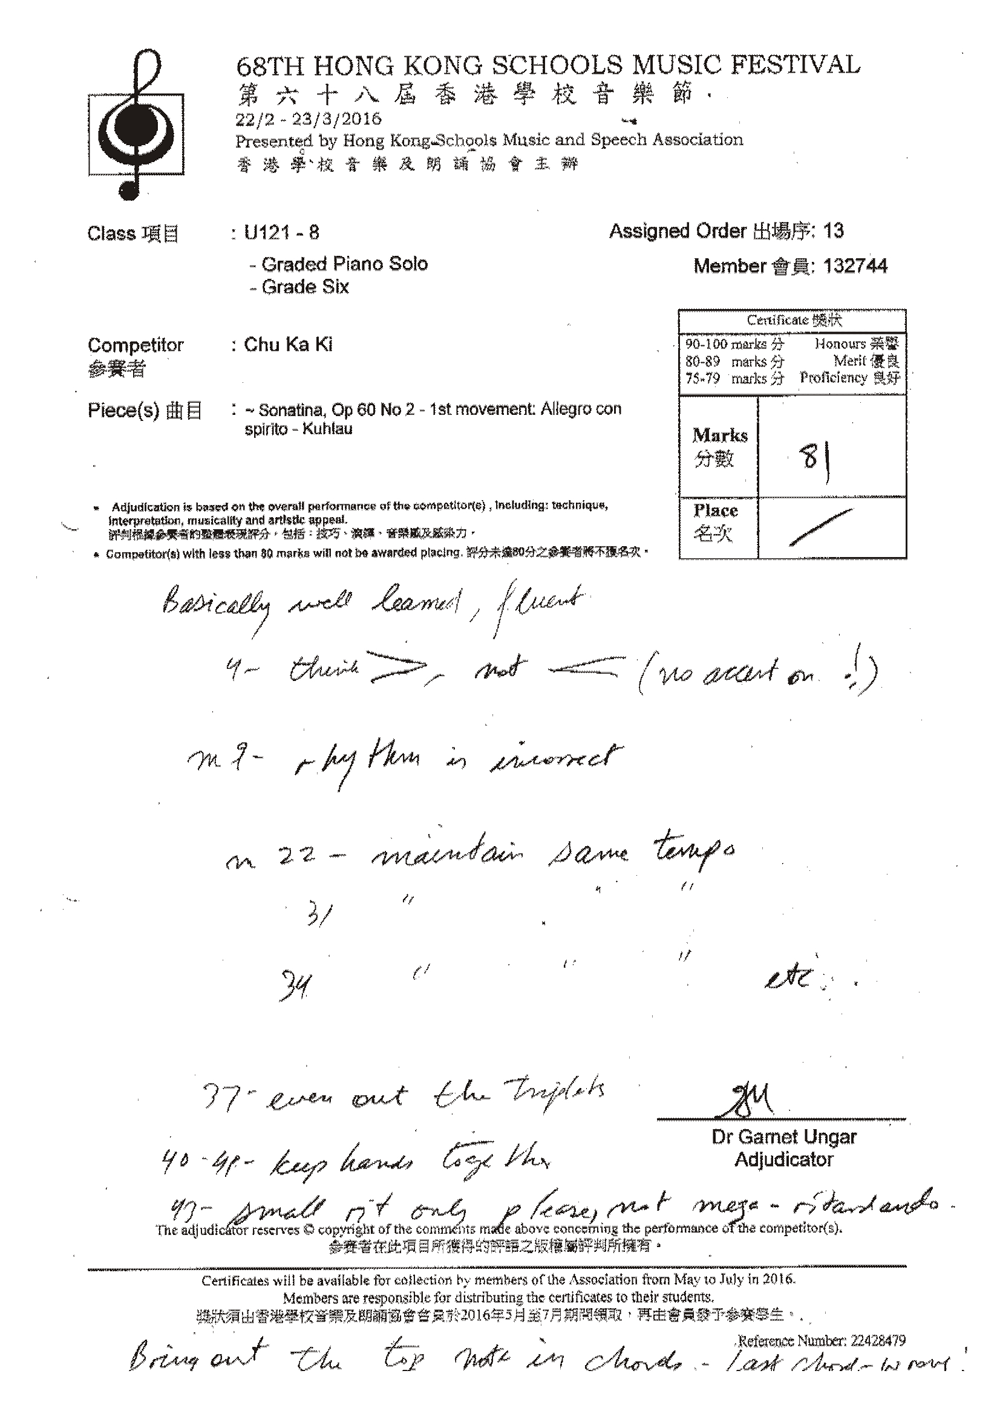 68TH HONG KONG SCHOOLS MUSIC FESTIVAL
第六十八屆香港學校音樂節
22/2 - 23/3/2016
Presented by Hong Kong Schools Music and Speech Association
香港學校音樂及朗誦協會主辦
Class 項目 : U121 - 8
Assigned Order 出場序: 13
- Graded Piano Solo
- Grade Six
Member 會員: 132744
Certificate 獎狀
90-100 marks 分 Honours 榮譽
80-89 marks 分 Merit 優良
75-79 marks 分 Proficiency 良好
Competitor : Chu Ka Ki
參賽者
Piece(s) 曲目 : ~ Sonatina, Op 60 No 2 - 1st movement: Allegro con
spirito - Kuhlau
Marks 81
分數
Place /
名次
* Adjudication is based on the overall performance of the competitor(s) , Including: technique,
interpretation, musicality and artistic appeal.
評判根據參賽者的整體表現評分，包括：技巧、演繹、音樂感及感染力。
* Competitor(s) with less than 80 marks will not be awarded placing. 評分未達80分之參賽者將不獲名次。
Basically well learned, fluent
4- think >, not < (no accent on !)
m 9- rhythm is incorrect
m 22 - maintain same tempo
31 " " "
34 " " " etc.
37- even out the triplets
Dr Garnet Ungar
Adjudicator
40-41- keep hands together
43- small rit only please, not mega-ritardando.
The adjudicator reserves © copyright of the comments made above concerning the performance of the competitor(s).
參賽者在此項目所獲得的評語之版權屬評判所擁有。
Certificates will be available for collection by members of the Association from May to July in 2016.
Members are responsible for distributing the certificates to their students.
獎狀須由香港學校音樂及朗誦協會會員於2016年5月至7月期間領取，再由會員發予參賽學生。
Reference Number: 22428479
Bring out the top note in chords. - last chord - wrong!